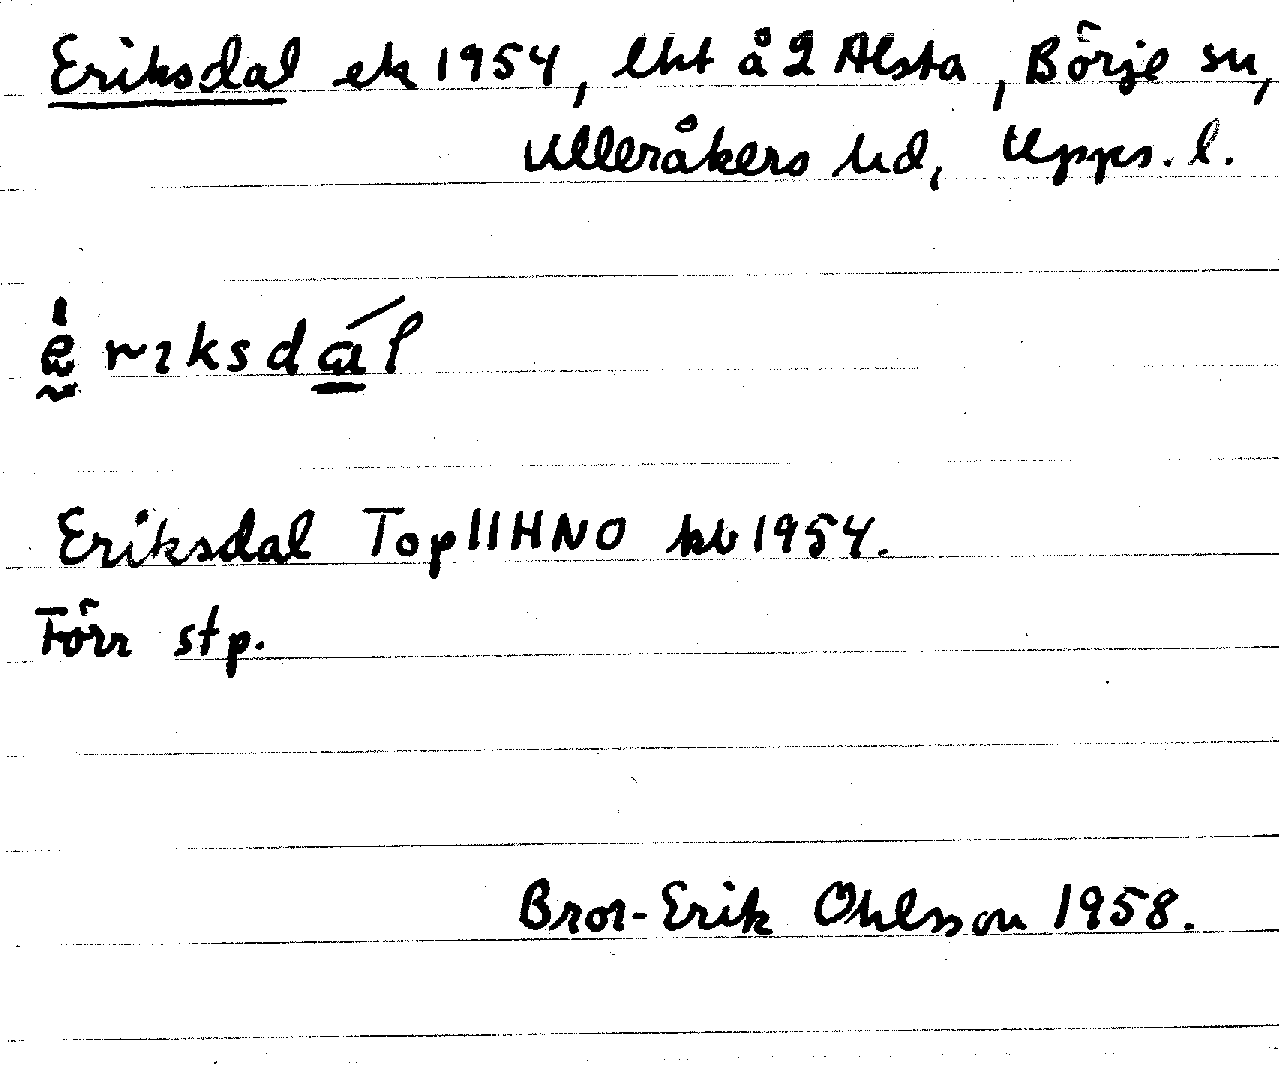 Eriksdal ek 1954, lht å 2 Alsta, Börje sn,
Ulleråkers hd, Upps. l.
Eriksdal Top 11H NO kb 1954.
Förr stp.
Bror-Erik Ohlsson 1958.